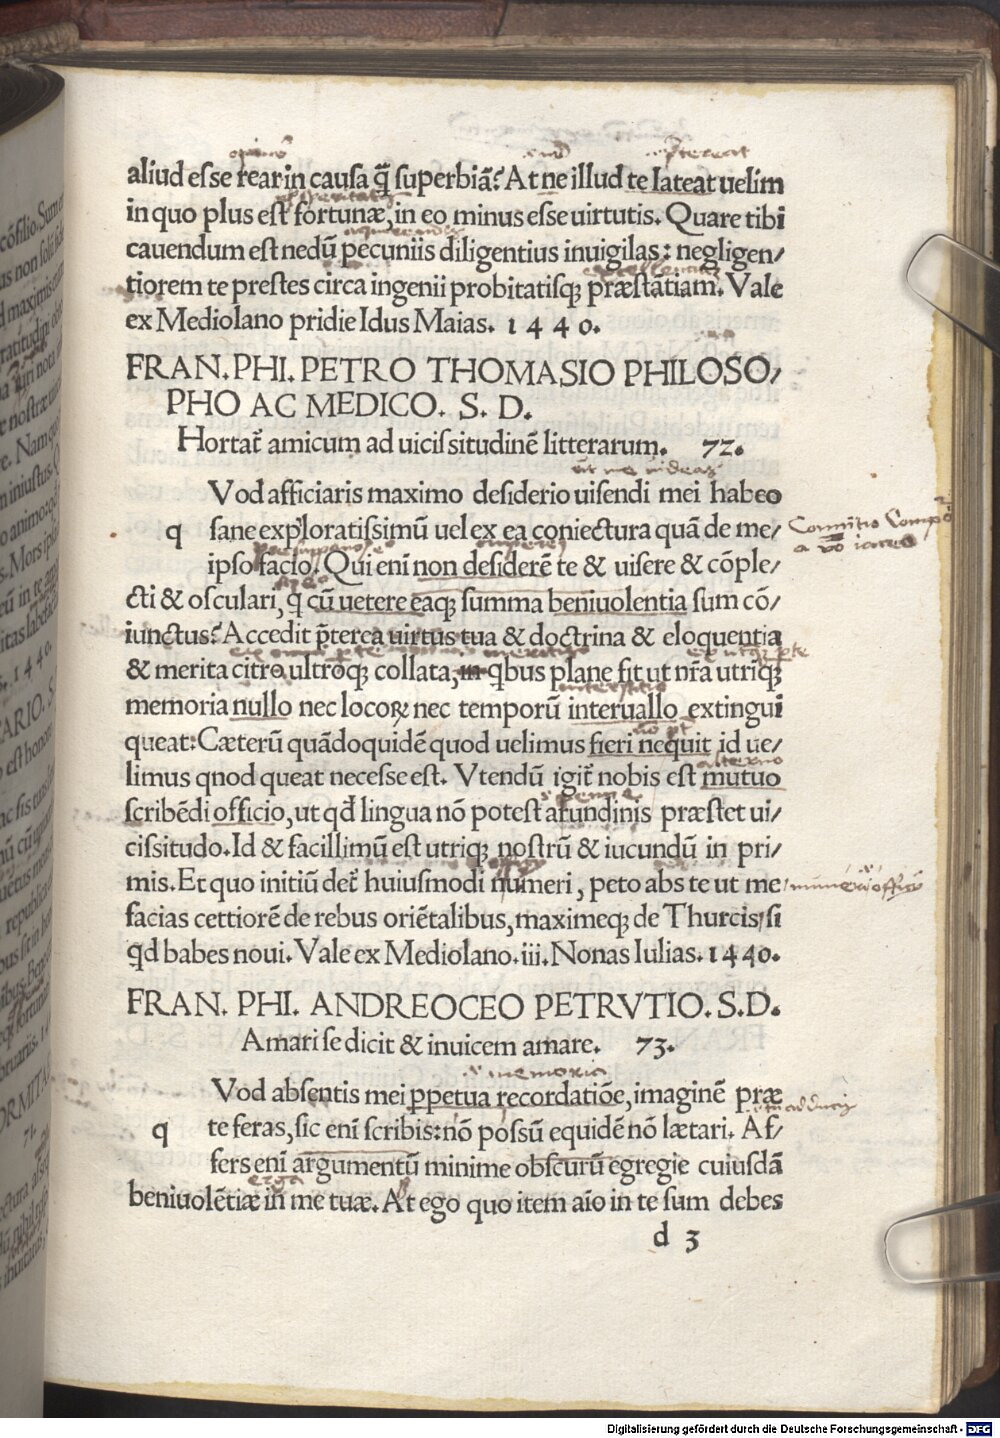 aliud esse rear in causa q̄ superbiā? At ne illud te lateat uelim
in quo plus est fortunæ, in eo minus esse uirtutis. Quare tibi
cauendum est nedū pecuniis diligentius inuigilas: negligen/
tiorem te prestes circa ingenii probitatisq; præstātiam. Vale
ex Mediolano pridie Idus Maias. 1440.
FRAN. PHI. PETRO THOMASIO PHILOSO/
PHO AC MEDICO. S. D.
Hortat̄ amicum ad uicissitudinē litterarum. 72.
Vod afficiaris maximo desiderio uisendi mei habeo
q sane exploratissimū uel ex ea coniectura quā de me/
ipso facio. Qui eni̅ non desiderē te & uisere & cōple/
cti & osculari, q̄ cū uetere eaq; summa beniuolentia sum cō/
iunctus? Accedit p̄terea uirtus tua & doctrina & eloquentia
& merita citro ultroq; collata, in qbus plane fit ut nr̄a utriq;
memoria nullo nec locoꝝ nec temporū interuallo extingui
queat: Cæterū quādoquidē quod uelimus fieri nequit id ue/
limus qnod queat necesse est. Vtendū igit̄ nobis est mutuo
scribēdi officio, ut qd̄ lingua nō potest afundinis præstet ui/
cissitudo. Id & facillimū est utriq; nostrū & iucundū in pri/
mis. Et quo initiū det̄ huiusmodi numeri, peto abs te ut me
facias cettiorē de rebus oriētalibus, maximeq; de Thurcis, si
qd babes noui. Vale ex Mediolano. iii. Nonas Iulias. 1440.
FRAN. PHI. ANDREOCEO PETRVTIO. S. D.
Amari se dicit & inuicem amare. 73.
Vod absentis mei ꝑpetua recordatiōe, imaginē præ
q te feras, sic eni̅ scribis: nō possū equidē nō lætari. Af/
fers eni̅ argumentū minime obscurū egregie cuiusdā
beniuolētiæ in me tuæ. At ego quo item aīo in te sum debes
d 3
Digitalisierung gefördert durch die Deutsche Forschungsgemeinschaft - DFG